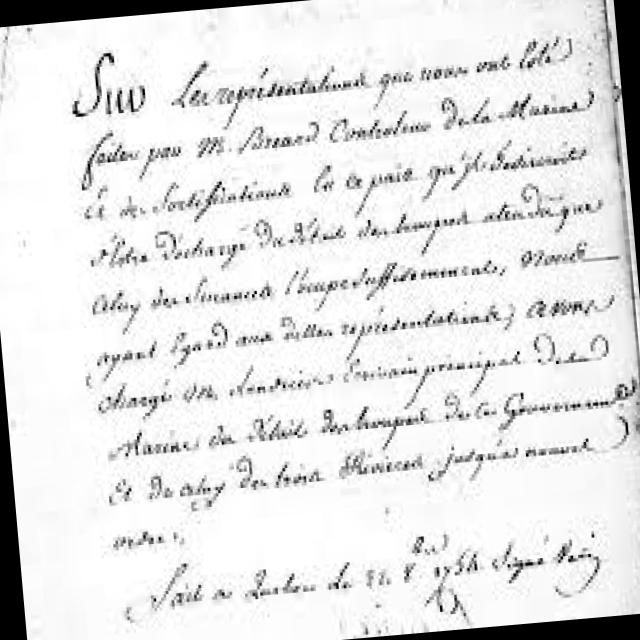 Sur Les représentations qui nous ont Esté
faites par M. Breard Controleur De la Marine
Et des fortifications En ce païs qu'il Désireroit
Estre déchargé Du Détail des troupes ainsi que
Celuy des finances indifféremment, Nous
ayant Egard aux dittes représentations, avons
chargé Ecrivain principal De la
Marine du Détail des troupes de ce Gouvernement
Et De celuy Des trois Rivieres jusqu'a nouvel
ordre.
Fait a Quebec le Signé